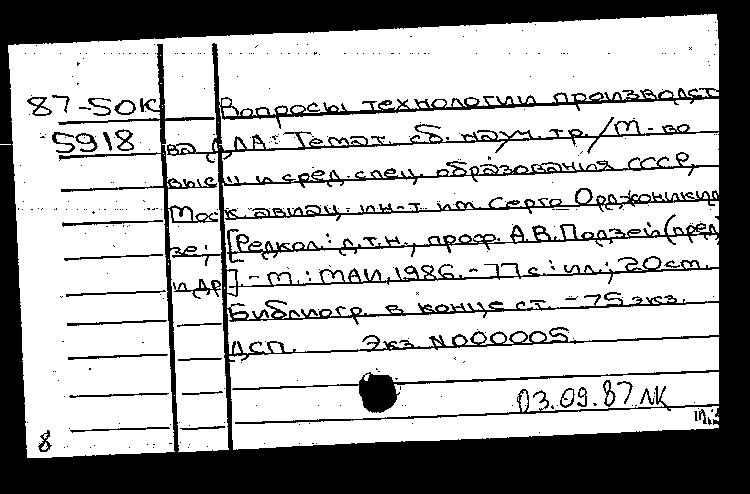 87-50К Вопросы технологии производст
5918 ва ДЛА: Темат. сб. науч. тр. / М-во
высш и сред. спец. образования СССР,
Моск авиац. ин-т им Серго Орджоникид
зе; [Редкол.: д.т.н., проф. А.В. Подзей (пред)
и др] - М.: МАИ, 1986. - 77 с.: ил.; 20 см.
Библиогр. в конце ст. - 75 экз.
ДСП. Экз N000005.
03.09.87 ЛК
8